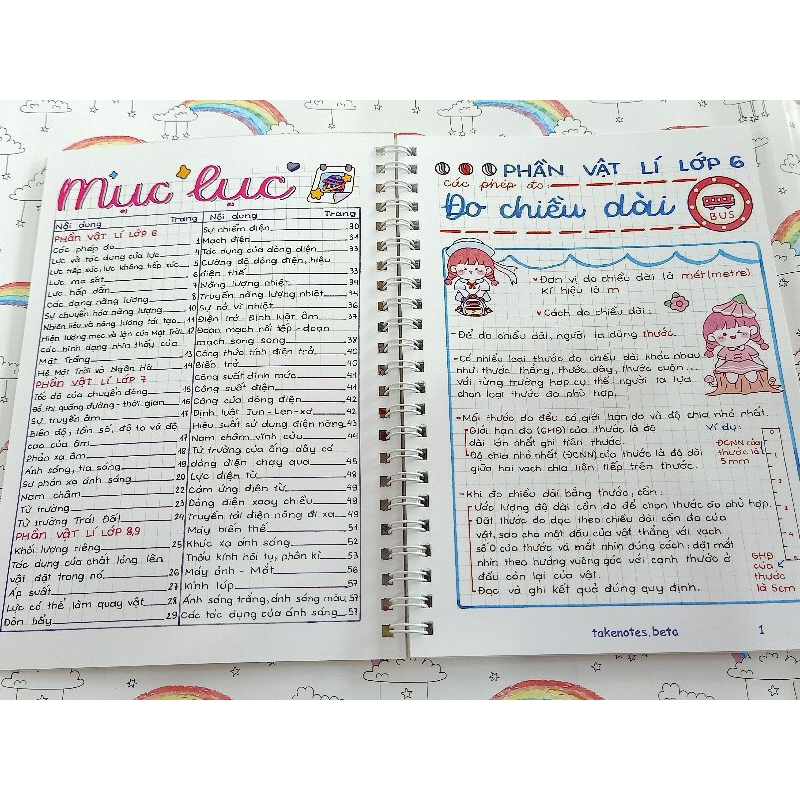 Mục lục
Nội dung Trang
PHẦN VẬT LÍ LỚP 6
Các phép đo 1
Lực và tác dụng của lực 4
Lực tiếp xúc, lực không tiếp xúc 5
Lực ma sát 6
Lực hấp dẫn 7
Các dạng năng lượng 8
Sự chuyển hóa năng lượng 10
Nhiên liệu và năng lượng tái tạo 11
Hiện tượng mọc và lặn của Mặt Trời 12
Các hình dạng nhìn thấy của
Mặt Trăng 13
Hệ Mặt Trời và Ngân Hà 14
PHẦN VẬT LÍ LỚP 7
Tốc độ của chuyển động 15
Đồ thị quãng đường - thời gian 16
Sự truyền âm 17
Biên độ, tần số, độ to và độ
cao của âm 17
Phản xạ âm 18
Ánh sáng, tia sáng 19
Sự phản xạ ánh sáng 20
Nam châm 22
Từ trường 23
Từ trường Trái Đất 24
PHẦN VẬT LÍ LỚP 8,9
Khối lượng riêng 25
Tác dụng của chất lỏng lên
vật đặt trong nó 26
Áp suất 27
Lực có thể làm quay vật 28
Đòn bẩy 29
Nội dung Trang
Sự nhiễm điện 30
Mạch điện 31
Tác dụng của dòng điện 33
Cường độ dòng điện, hiệu
điện thế 33
Năng lượng nhiệt 34
Truyền năng lượng nhiệt 34
Sự nở vì nhiệt 36
Điện trở - Định luật Ôm 37
Đoạn mạch nối tiếp - đoạn
mạch song song 38
Công thức tính điện trở 40
Biến trở 40
Công suất định mức 41
Công suất điện 41
Công của dòng điện 42
Định luật Jun-Len-xơ 42
Hiệu suất sử dụng điện năng 43
Nam châm vĩnh cửu 44
Từ trường của ống dây có
dòng điện chạy qua 45
Lực điện từ 48
Cảm ứng điện từ 49
Dòng điện xoay chiều 49
Truyền tải điện năng đi xa 49
Máy biến thế 51
Khúc xạ ánh sáng 52
Thấu kính hội tụ, phân kì 53
Máy ảnh - Mắt 56
Kính lúp 57
Ánh sáng trắng, ánh sáng màu 57
Các tác dụng của ánh sáng 57
PHẦN VẬT LÍ LỚP 6
Các phép đo:
Đo chiều dài
BUS
Đơn vị đo chiều dài là mét (metre)
Kí hiệu là m
Cách đo chiều dài:
- Để đo chiều dài, người ta dùng thước.
- Có nhiều loại thước đo chiều dài khác nhau
như thước thẳng, thước dây, thước cuộn...
Với từng trường hợp cụ thể người ta lựa
chọn loại thước đo phù hợp.
- Mỗi thước đo đều có giới hạn đo và độ chia nhỏ nhất.
Giới hạn đo (GHĐ) của thước là độ
dài lớn nhất ghi trên thước.
Độ chia nhỏ nhất (ĐCNN) của thước là độ dài
giữa hai vạch chia liên tiếp trên thước.
Ví dụ:
ĐCNN của
thước là
5mm
- Khi đo chiều dài bằng thước, cần:
Ước lượng độ dài cần đo để chọn thước đo phù hợp.
Đặt thước đo dọc theo chiều dài cần đo của
vật, sao cho một đầu của vật thẳng với vạch
số 0 của thước và mắt nhìn đúng cách: đặt mắt
nhìn theo hướng vuông góc với cạnh thước ở
đầu còn lại của vật.
Đọc và ghi kết quả đúng quy định.
GHĐ
của
thước
là 5cm
takenotes.beta 1